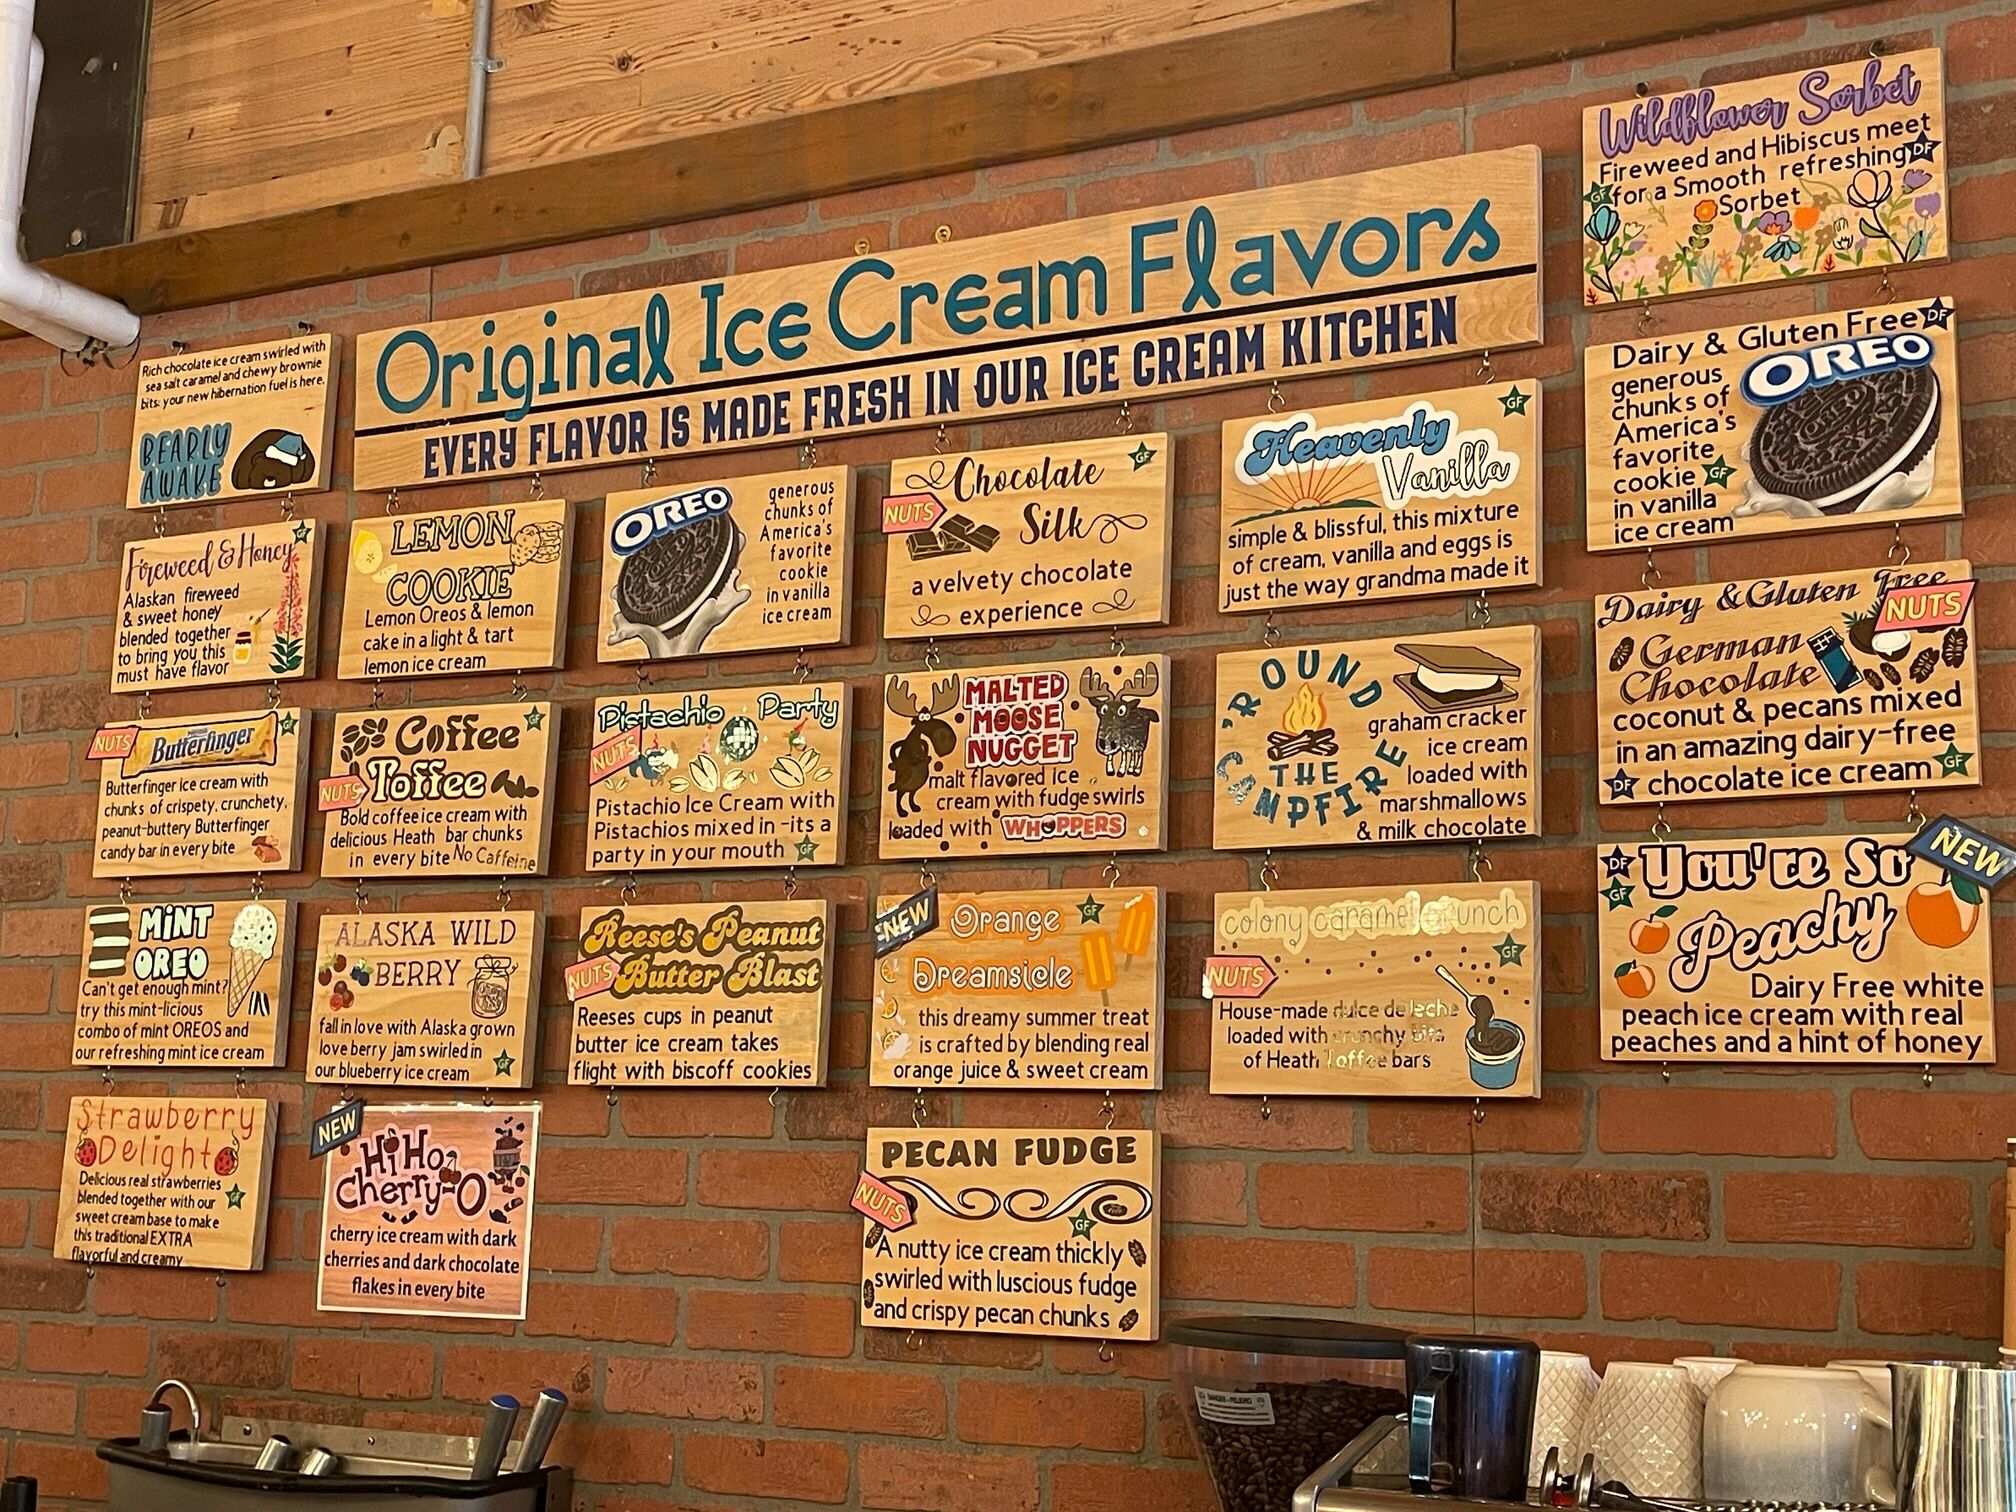 Original Ice Cream Flavors
EVERY FLAVOR IS MADE FRESH IN OUR ICE CREAM KITCHEN
Rich chocolate ice cream swirled with
sea salt caramel and chewy brownie
bits: your new hibernation fuel is here.
BEARLY
AWAKE
Fireweed & Honey
GF
Alaskan fireweed
& sweet honey
blended together
to bring you this
must have flavor
NUTS
Butterfinger
GF
Butterfinger ice cream with
chunks of crispety, crunchety,
peanut-buttery Butterfinger
candy bar in every bite
MiNT
OREO
Can't get enough mint?
try this mint-licious
combo of mint OREOS and
our refreshing mint ice cream
Strawberry
Delight
Delicious real strawberries
blended together with our
GF
sweet cream base to make
this traditional EXTRA
flavorful and creamy
LEMON
COOKIE
Lemon Oreos & lemon
cake in a light & tart
lemon ice cream
Coffee
GF
Toffee
NUTS
Bold coffee ice cream with
delicious Heath bar chunks
in every bite No Caffeine
ALASKA WILD
BERRY
fall in love with Alaska grown
love berry jam swirled in
our blueberry ice cream
GF
NEW
Hi Ho
Cherry-O
cherry ice cream with dark
cherries and dark chocolate
flakes in every bite
OREO
generous
chunks of
America's
favorite
cookie
in vanilla
ice cream
Pistachio Party
NUTS
Pistachio Ice Cream with
Pistachios mixed in -its a
party in your mouth GF
Reese's Peanut
Butter Blast
NUTS
Reeses cups in peanut
butter ice cream takes
flight with biscoff cookies
Chocolate
GF
NUTS
Silk
a velvety chocolate
experience
MALTED
MOOSE
NUGGET
malt flavored ice
cream with fudge swirls
loaded with WHOPPERS
NEW
Orange
GF
Dreamsicle
this dreamy summer treat
is crafted by blending real
orange juice & sweet cream
PECAN FUDGE
NUTS
GF
A nutty ice cream thickly
swirled with luscious fudge
and crispy pecan chunks
GF
Heavenly
Vanilla
simple & blissful, this mixture
of cream, vanilla and eggs is
just the way grandma made it
'ROUND
THE
CAMPFIRE
graham cracker
ice cream
loaded with
marshmallows
& milk chocolate
colony caramel crunch
GF
NUTS
House-made dulce de leche
loaded with crunchy bits
of Heath Toffee bars
Wildflower Sorbet
Fireweed and Hibiscus meet
DF
GF
for a Smooth refreshing
Sorbet
Dairy & Gluten Free
DF
OREO
generous
chunks of
America's
favorite
cookie GF
in vanilla
ice cream
Dairy & Gluten Free
NUTS
German
Chocolate
coconut & pecans mixed
in an amazing dairy-free
DF chocolate ice cream GF
DF
GF
NEW
You're So
Peachy
Dairy Free white
peach ice cream with real
peaches and a hint of honey